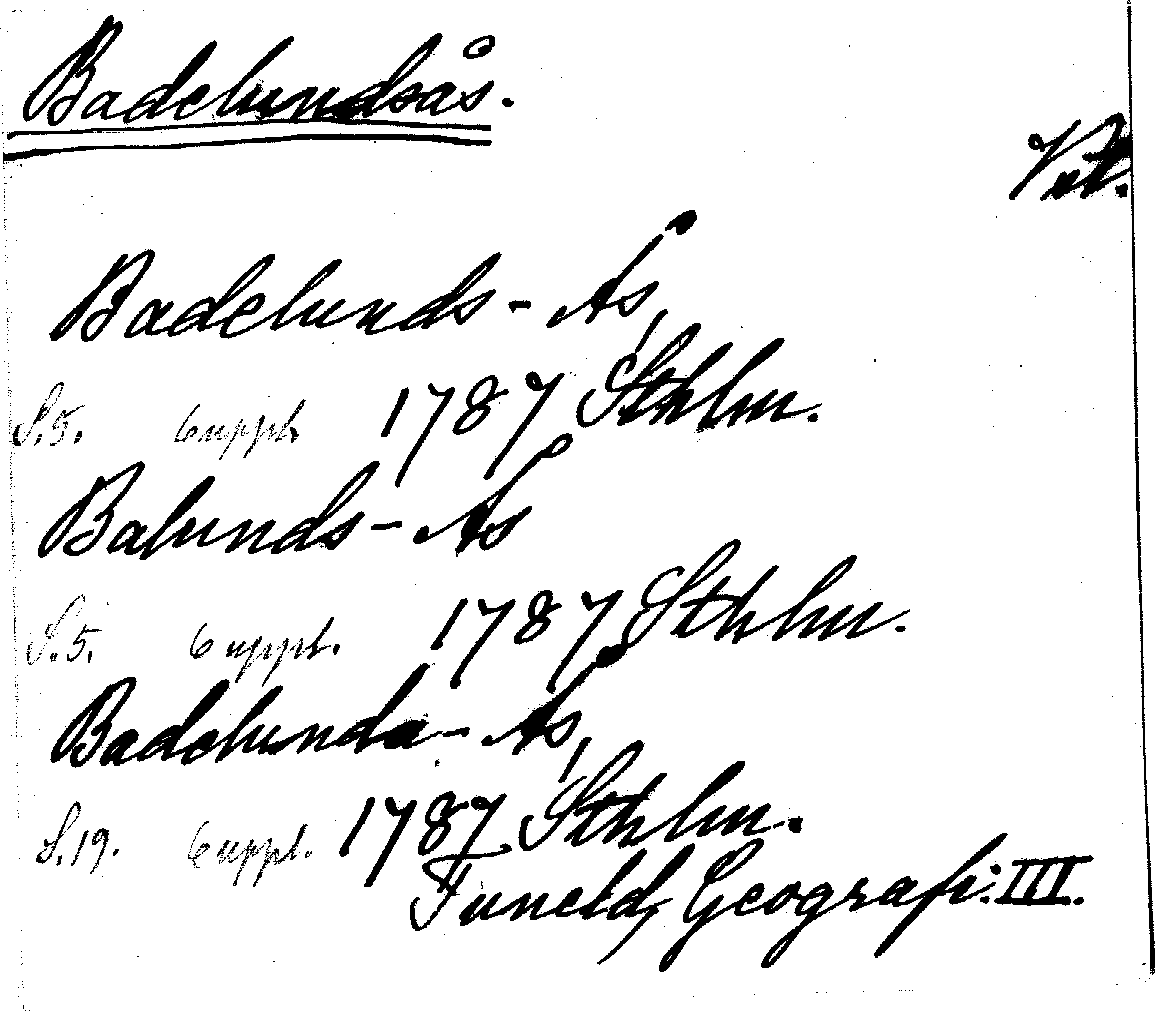 Badelundsås.
Vstl.
Badelunds-Ås,
S.5. 6 uppl. 1787 Sthlm.
Balunds-Ås
S.5. 6 uppl. 1787 Sthlm.
Badelunda-Ås,
S.19. 6 uppl. 1787 Sthlm.
Tuneld, Geografi: III.